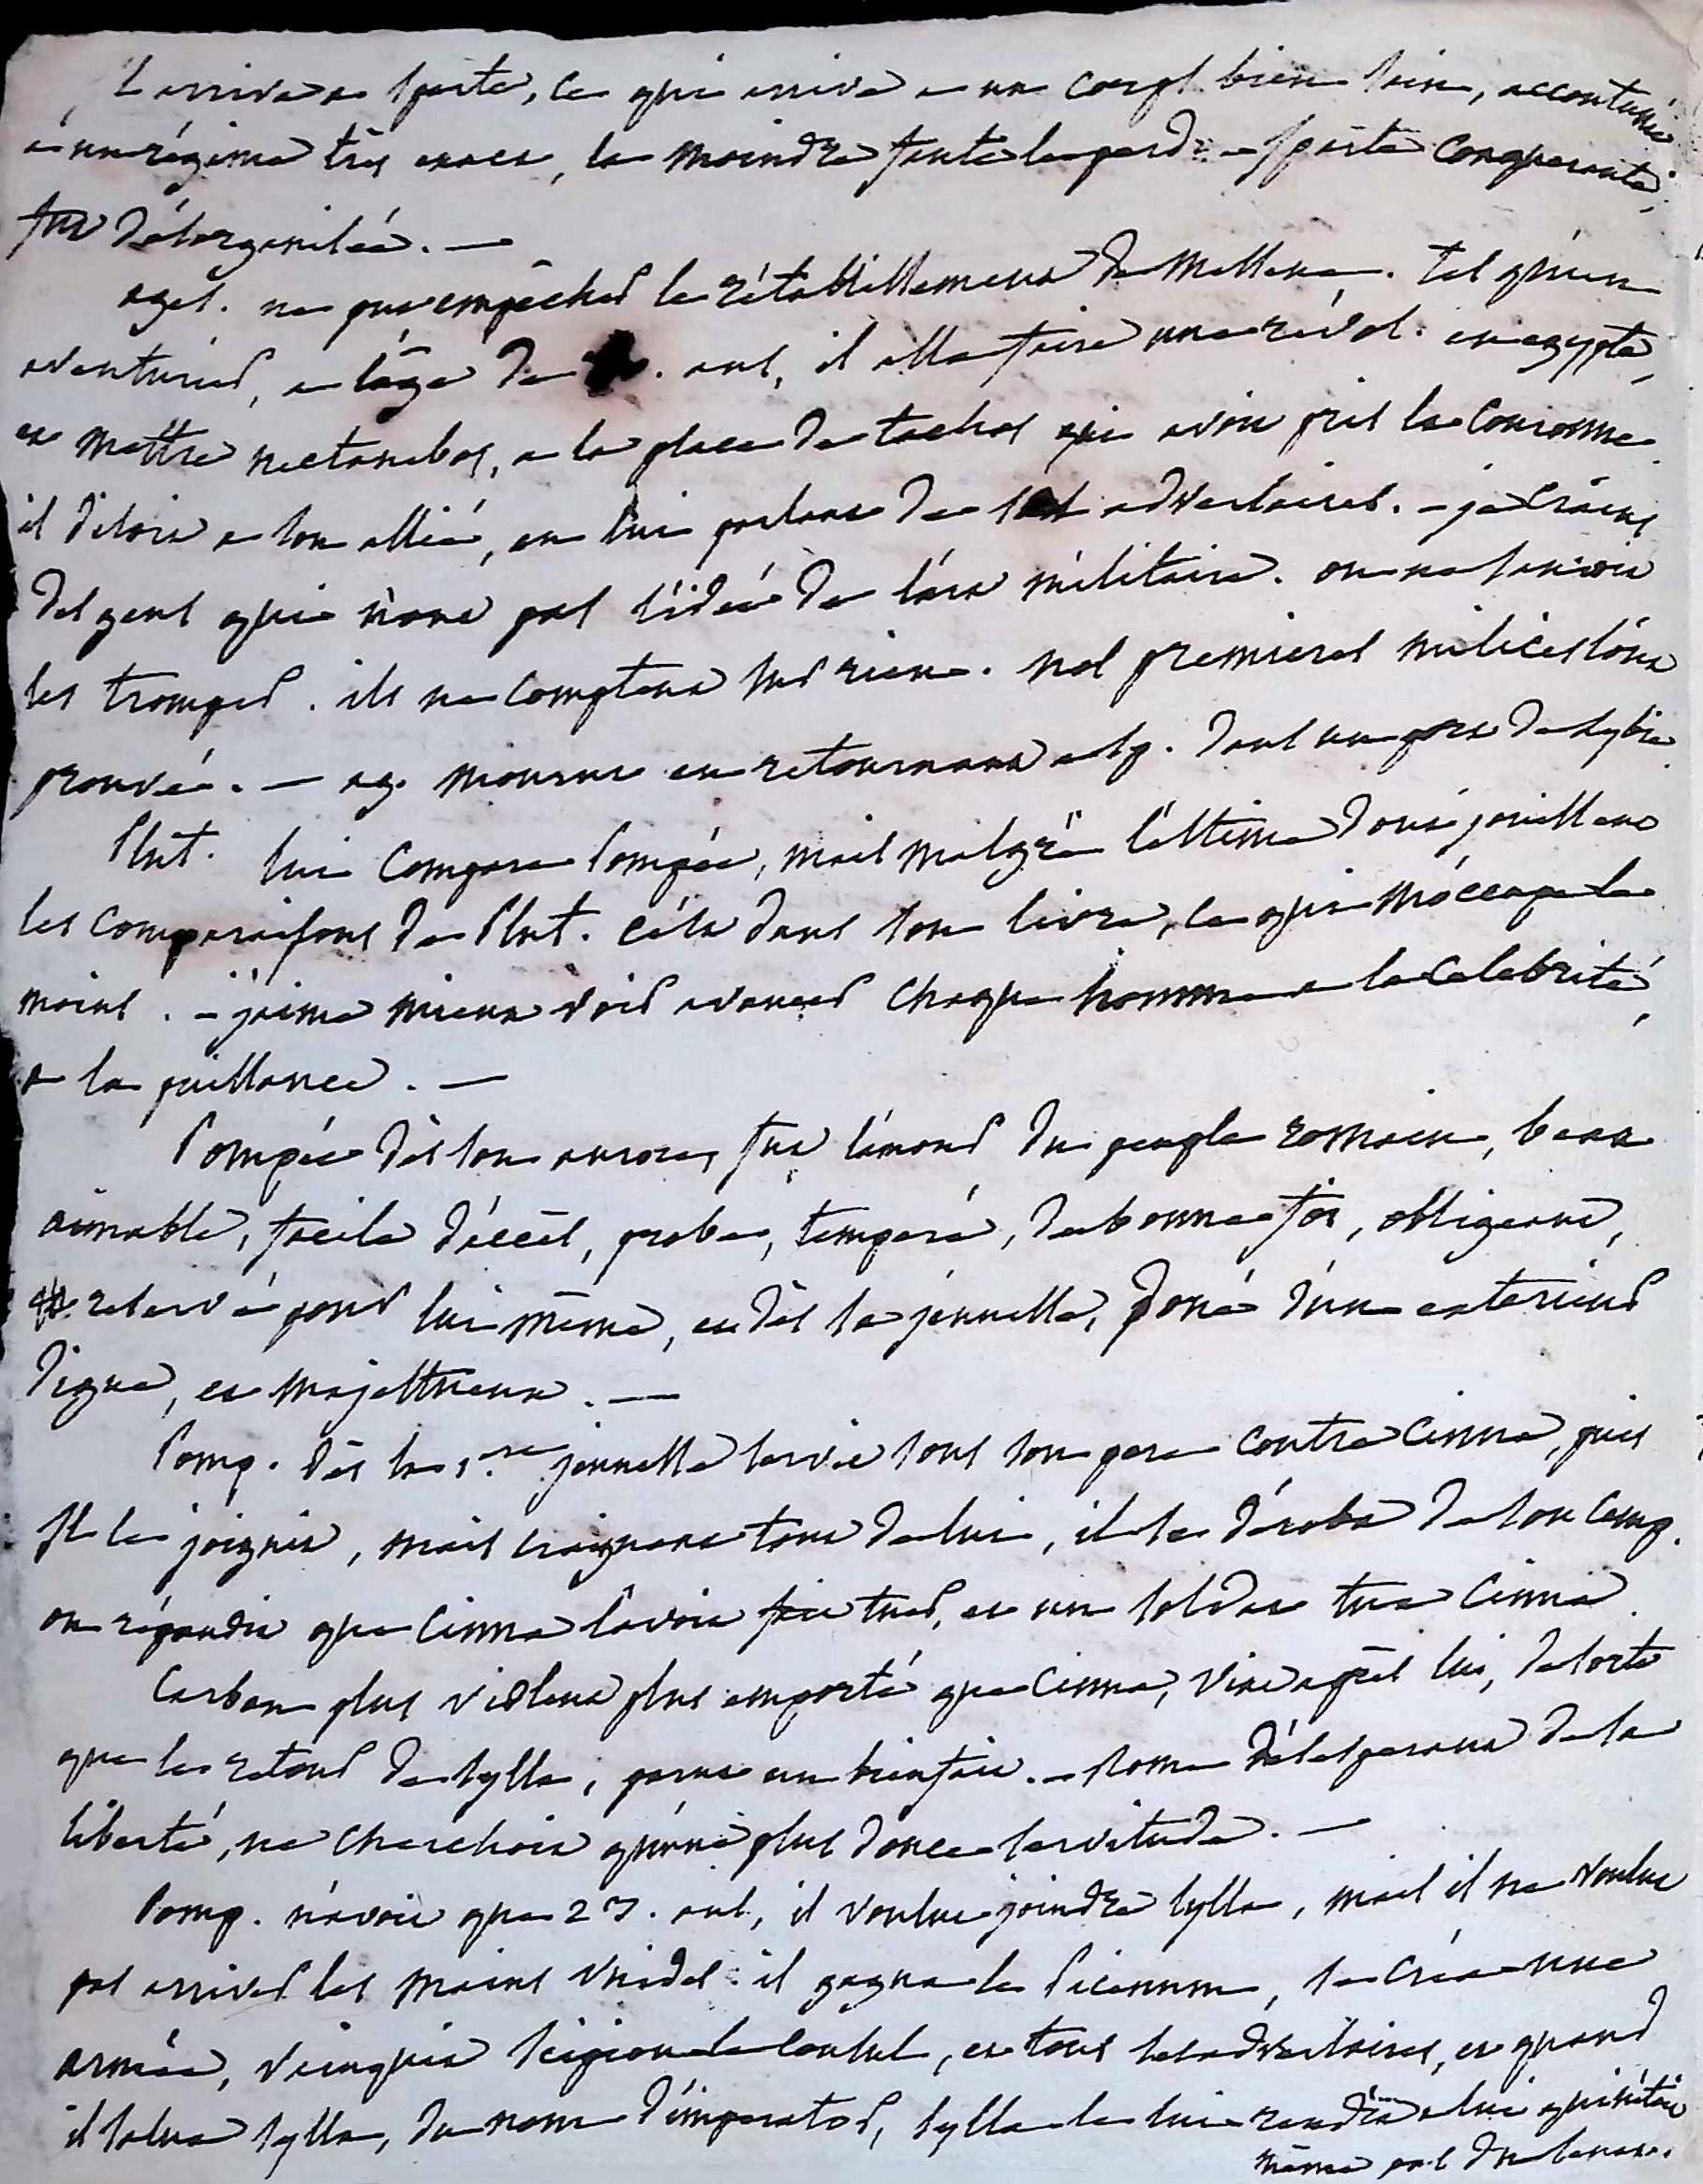 Il arriva a Sparte, ce qui arrive a un corps bien sain, accoutumé
a un régime très exact, la moindre faute le perd. – Sparte conquerante,
fut désorganisée. —
ages. ne put empêcher le rétablissement de Messene. tel qu'un
aventurier, a l'âge de . ans, il alla faire une révol. en egypte,
et mettre nectanebos, a la place de tachos qui avoit pris la couronne.
il disoit a son allié, en lui parlant de ses adversaires. – je crains
des gens qui n'ont pas l'idée de l'art militaire. on ne sauroit
les tromper. ils ne comptent sur rien. nos premieres milices l'ont
prouvé. — ag. mourut en retournant a Sp. dans un port de Lybie.
Plut. lui compare Pompée, mais malgré l'estime dont jouissent
les comparaisons de Plut. c'est dans son livre, ce qui m'occupe le
moins. – j'aime mieux voir avancer chaque homme a la celebrité,
a la puissance. —
Pompée dès son aurore, fut l'amour du peuple romain, beau
aimable, facile d'accès, probe, temperé, de bonne foi, obligeant,
reservé pour lui même, et dès sa jeunesse, doué d'un exterieur
digne, et majestueux. —
Pomp. dès sa 1.re jeunesse servit sous son pere contre Cinna, puis
il le joignit, mais craignant tout de lui, il se déroba de son camp.
on répandit que Cinna l'avoit fait tuer, et un soldat tua Cinna.
Carbon plus violent plus emporté que Cinna, vint après lui, de sorte
que le retour de Sylla, parut un bienfait. – Rome désesperant de la
liberté, ne cherchoit qu'une plus douce servitude. —
Pomp. n'avoit que 23. ans, il voulut joindre Sylla, mais il ne voulut
pas arriver les mains vuides. il gagna le Picenum, se créa une
armée, vainquit Scipion le consul, et tous ses adversaires, et quand
il salua Sylla, du nom d'imperator, Sylla le lui rendit a lui qui n'étoit
même pas du senat.